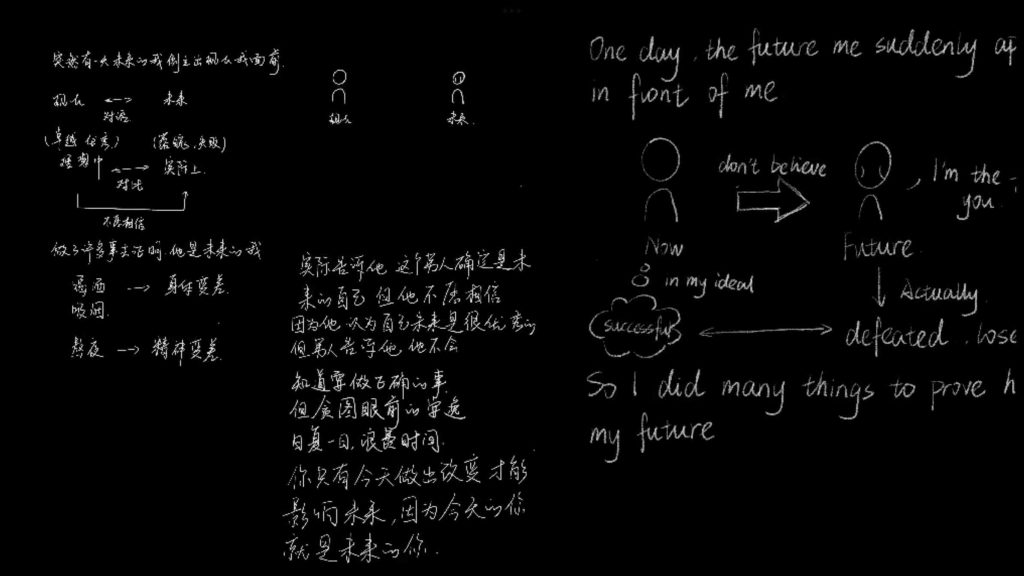 突然有一天未来的我倒立出现在我面前.
现在 未来
对应
(卓越 优秀) (落魄、失败)
理想中 实际上.
对比
不愿相信
做了许多事去证明,他是未来的我
喝酒 身体变差.
吸烟.
熬夜 精神变差.
现在 未来.
实际告诉他 这个男人确定是未
来的自己 但他不愿相信
因为他 认为自己未来是很优秀的
但男人告诉他 他不会
知道要做正确的事
但贪图眼前的安逸
日复一日,浪费时间.
你只有今天做出改变才能
影响未来,因为今天的你
就是未来的你.
One day, the future me suddenly ap
in front of me
don't believe
, I'm the
you.
Now
Future.
in my ideal
Actually
successful
defeated . lose
So I did many things to prove h
my future